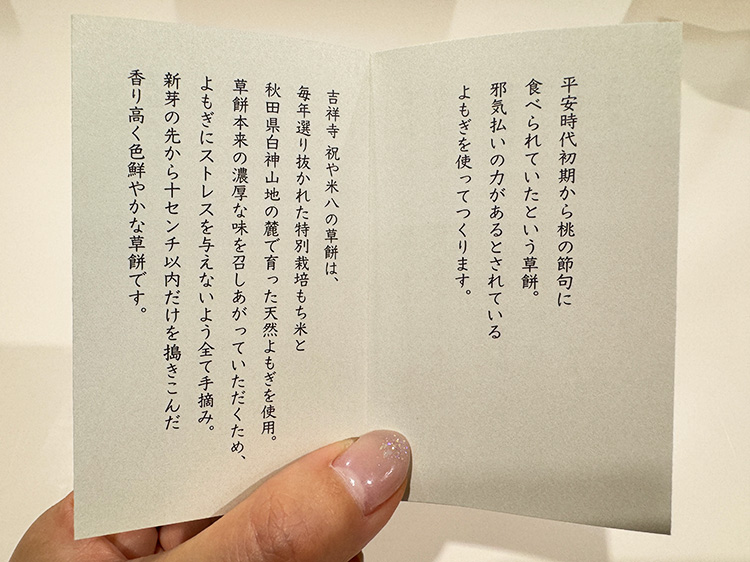 平安時代初期から桃の節句に
食べられていたという草餅。
邪気払いの力があるとされている
よもぎを使ってつくります。
吉祥寺 祝や米八の草餅は、
毎年選り抜かれた特別栽培もち米と
秋田県白神山地の麓で育った天然よもぎを使用。
草餅本来の濃厚な味を召しあがっていただくため、
よもぎにストレスを与えないよう全て手摘み。
新芽の先から十センチ以内だけを搗きこんだ
香り高く色鮮やかな草餅です。